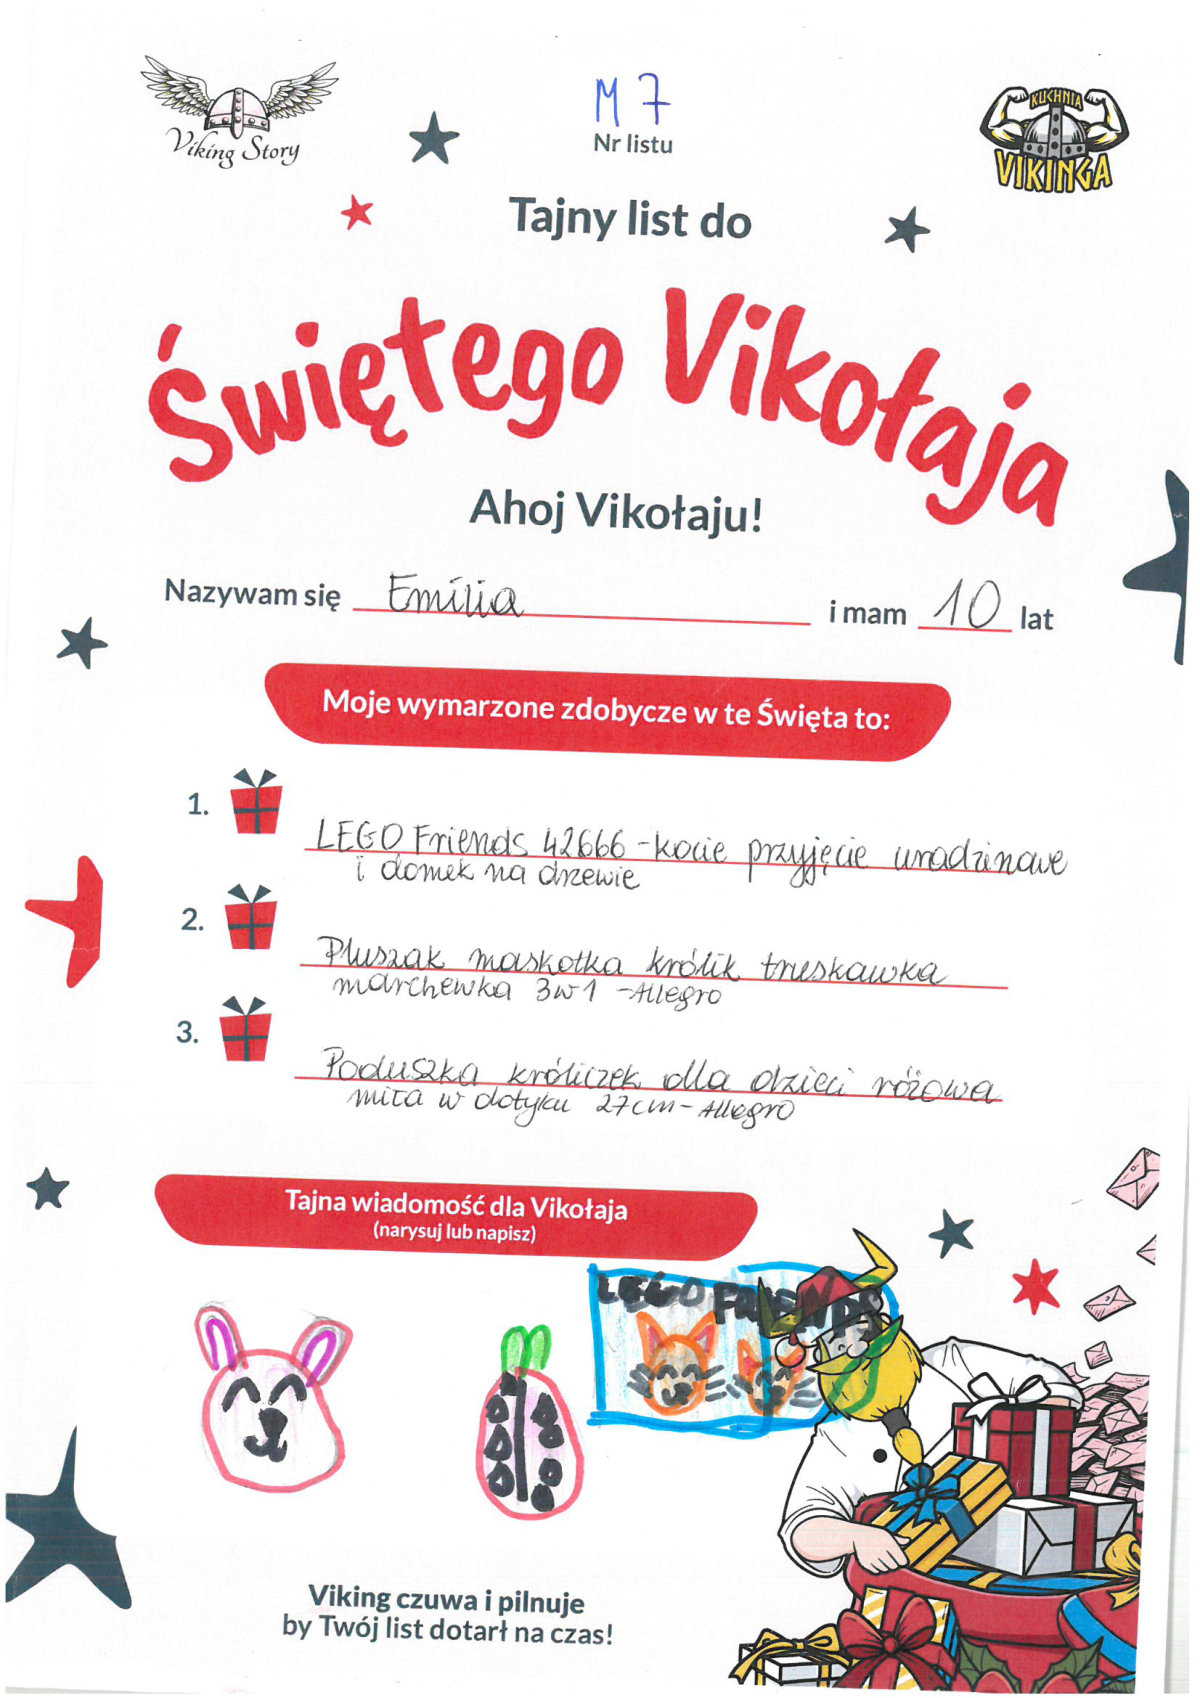 Viking Story
M 7
Nr listu
KUCHNIA
VIKINGA
Tajny list do
Świętego Vikołaja
Ahoj Vikołaju!
Nazywam się Emilia i mam 10 lat
Moje wymarzone zdobycze w te Święta to:
1. LEGO Friends 42666 - kocie przyjęcie urodzinowe
i domek na drzewie
2. Pluszak maskotka królik truskawka
marchewka 3w1 - Allegro
3. Poduszka króliczek dla dzieci różowa
miła w dotyku 27cm - Allegro
Tajna wiadomość dla Vikołaja
(narysuj lub napisz)
LEGO FRIENDS
Viking czuwa i pilnuje
by Twój list dotarł na czas!